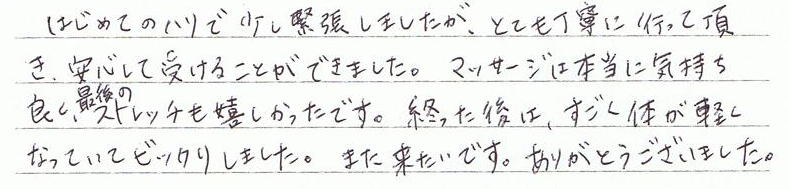 はじめてのハリで少し緊張しましたが、とても丁寧に行って頂
き、安心して受けることができました。マッサージは本当に気持ち
良く、最後のストレッチも嬉しかったです。終った後は、すごく体が軽く
なっていてビックリしました。また来たいです。ありがとうございました。